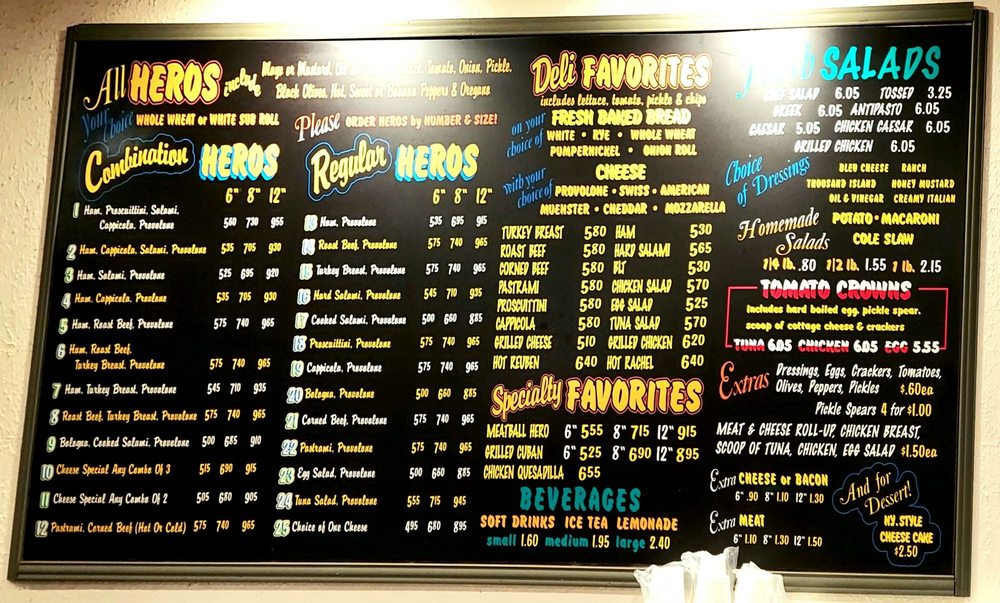 All HEROS include Mayo or Mustard, Oil Tomato, Onion, Pickle,
Black Olives, Hot, Sweet or Banana Peppers & Oregano
Your Choice WHOLE WHEAT or WHITE SUB ROLL
Please ORDER HEROS by NUMBER & SIZE!
Combination HEROS
6" 8" 12"
1 Ham, Proscuittini, Salami,
Cappicola, Provolone 560 730 955
2 Ham, Cappicola, Salami, Provolone 535 705 930
3 Ham, Salami, Provolone 525 695 920
4 Ham, Cappicola, Provolone 535 705 930
5 Ham, Roast Beef, Provolone 575 740 965
6 Ham, Roast Beef,
Turkey Breast, Provolone 575 740 965
7 Ham, Turkey Breast, Provolone 545 710 935
8 Roast Beef, Turkey Breast, Provolone 575 740 965
9 Bologna, Cooked Salami, Provolone 500 685 910
10 Cheese Special Any Combo Of 3 515 690 915
11 Cheese Special Any Combo Of 2 505 680 905
12 Pastrami, Corned Beef (Hot Or Cold) 575 740 965
Regular HEROS
6" 8" 12"
13 Ham, Provolone 535 695 915
14 Roast Beef, Provolone 575 740 965
15 Turkey Breast, Provolone 575 740 965
16 Hard Salami, Provolone 545 710 935
17 Cooked Salami, Provolone 500 660 885
18 Proscuittini, Provolone 575 740 965
19 Cappicola, Provolone 575 740 965
20 Bologna, Provolone 500 660 885
21 Corned Beef, Provolone 575 740 965
22 Pastrami, Provolone 575 740 965
23 Egg Salad, Provolone 500 660 885
24 Tuna Salad, Provolone 555 715 945
25 Choice of One Cheese 495 680 895
Deli FAVORITES
includes lettuce, tomato, pickle & chips
on your choice of FRESH BAKED BREAD
WHITE • RYE • WHOLE WHEAT
PUMPERNICKEL • ONION ROLL
with your choice of CHEESE
PROVOLONE • SWISS • AMERICAN
MUENSTER • CHEDDAR • MOZZARELLA
TURKEY BREAST 580 HAM 530
ROAST BEEF 580 HARD SALAMI 565
CORNED BEEF 580 BLT 530
PASTRAMI 580 CHICKEN SALAD 570
PROSCUITTINI 580 EGG SALAD 525
CAPPICOLA 580 TUNA SALAD 570
GRILLED CHEESE 510 GRILLED CHICKEN 620
HOT REUBEN 640 HOT RACHEL 640
Specialty FAVORITES
MEATBALL HERO 6" 555 8" 715 12" 915
GRILLED CUBAN 6" 525 8" 690 12" 895
CHICKEN QUESADILLA 655
BEVERAGES
SOFT DRINKS ICE TEA LEMONADE
small 1.60 medium 1.95 large 2.40
SALADS
CHEF SALAD 6.05 TOSSED 3.25
GREEK 6.05 ANTIPASTO 6.05
CAESAR 5.05 CHICKEN CAESAR 6.05
GRILLED CHICKEN 6.05
Choice of Dressings
BLEU CHEESE RANCH
THOUSAND ISLAND HONEY MUSTARD
OIL & VINEGAR CREAMY ITALIAN
Homemade Salads
POTATO • MACARONI
COLE SLAW
1/4 lb. .80 1/2 lb. 1.55 1 lb. 2.15
TOMATO CROWNS
Includes hard boiled egg, pickle spear,
scoop of cottage cheese & crackers
TUNA 6.05 CHICKEN 6.05 EGG 5.55
Extras Dressings, Eggs, Crackers, Tomatoes,
Olives, Peppers, Pickles $.60ea
Pickle Spears 4 for $1.00
MEAT & CHEESE ROLL-UP, CHICKEN BREAST,
SCOOP OF TUNA, CHICKEN, EGG SALAD $1.50ea
Extra CHEESE or BACON
6" .90 8" 1.10 12" 1.30
Extra MEAT
6" 1.10 8" 1.30 12" 1.50
And for Dessert!
N.Y. STYLE
CHEESE CAKE
$2.50